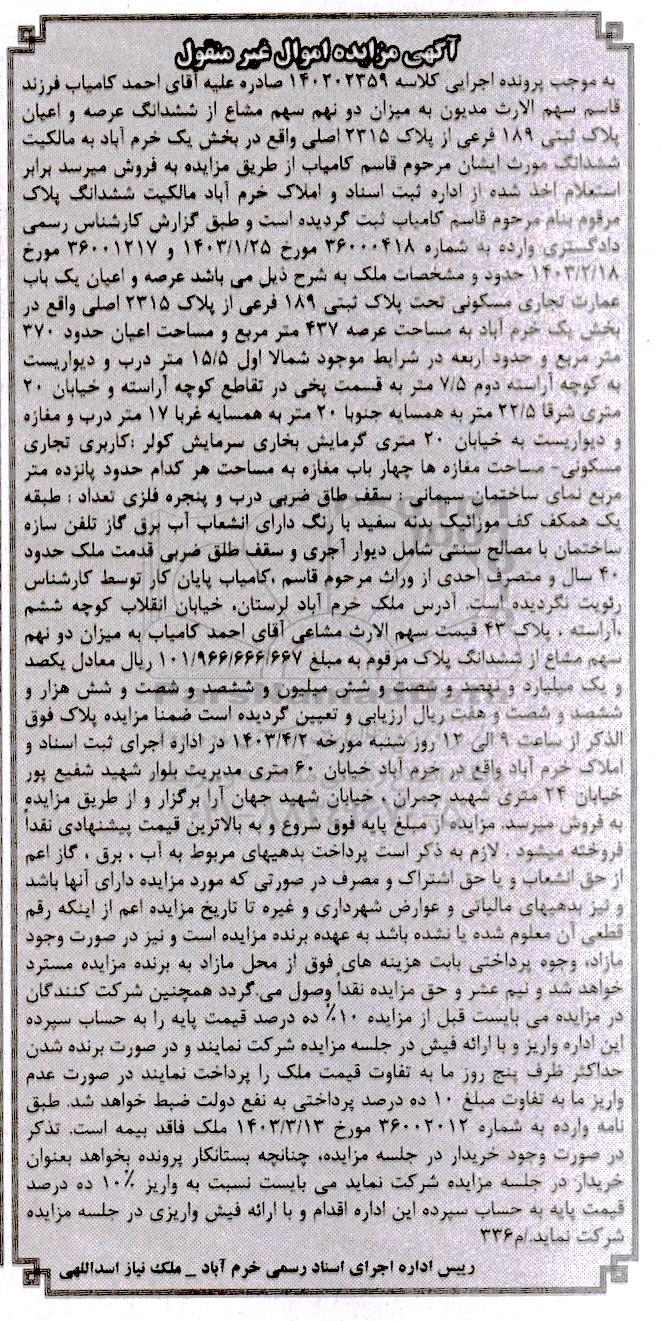 آگهی مزایده اموال غیر منقول
به موجب پرونده اجرایی کلاسه ۱۴۰۲۰۲۳۵۹ صادره علیه آقای احمد کامیاب فرزند
قاسم سهم الارث مدیون به میزان دو نهم سهم مشاع از ششدانگ عرصه و اعیان
پلاک ثبتی ۱۸۹ فرعی از پلاک ۲۳۱۵ اصلی واقع در بخش یک خرم آباد به مالکیت
ششدانگ مورث ایشان مرحوم قاسم کامیاب از طریق مزایده به فروش میرسد برابر
استعلام اخذ شده از اداره ثبت اسناد و املاک خرم آباد مالکیت ششدانگ پلاک
مرقوم بنام مرحوم قاسم کامیاب ثبت گردیده است و طبق گزارش کارشناس رسمی
دادگستری وارده به شماره ۳۶۰۰۰۴۱۸ مورخ ۱۴۰۳/۱/۲۵ و ۳۶۰۰۱۲۱۷ مورخ
۱۴۰۳/۲/۱۸ حدود و مشخصات ملک به شرح ذیل می باشد عرصه و اعیان یک باب
عمارت تجاری مسکونی تحت پلاک ثبتی ۱۸۹ فرعی از پلاک ۲۳۱۵ اصلی واقع در
بخش یک خرم آباد به مساحت عرصه ۴۳۷ متر مربع و مساحت اعیان حدود ۳۷۰
متر مربع و حدود اربعه در شرایط موجود شمالا اول ۱۵/۵ متر درب و دیواریست
به کوچه آراسته دوم ۷/۵ متر به قسمت پخی در تقاطع کوچه آراسته و خیابان ۲۰
متری شرقا ۲۲/۵ متر به همسایه جنوبا ۲۰ متر به همسایه غربا ۱۷ متر درب و مغازه
و دیواریست به خیابان ۲۰ متری گرمایش بخاری سرمایش کولر :کاربری تجاری
مسکونی- مساحت مغازه ها چهار باب مغازه به مساحت هر کدام حدود پانزده متر
مربع نمای ساختمان سیمانی : سقف طاق ضربی درب و پنجره فلزی تعداد : طبقه
یک همکف کف موزائیک بدنه سفید با رنگ دارای انشعاب آب برق گاز تلفن سازه
ساختمان با مصالح سنتی شامل دیوار آجری و سقف طلق ضربی قدمت ملک حدود
۴۰ سال و متصرف احدی از وراث مرحوم قاسم ،کامیاب پایان کار توسط کارشناس
رئویت نگردیده است. آدرس ملک خرم آباد لرستان، خیابان انقلاب کوچه ششم
،آراسته ، پلاک ۴۳ قیمت سهم الارث مشاعی آقای احمد کامیاب به میزان دو نهم
سهم مشاع از ششدانگ پلاک مرقوم به مبلغ ۱۰۱/۹۶۶/۶۶۶/۶۶۷ ریال معادل یکصد
و یک میلیارد و نهصد و شصت و شش میلیون و ششصد و شصت و شش هزار و
ششصد و شصت و هفت ریال ارزیابی و تعیین گردیده است ضمنا مزایده پلاک فوق
الذکر از ساعت ۹ الی ۱۲ روز شنبه مورخه ۱۴۰۳/۴/۲ در اداره اجرای ثبت اسناد و
املاک خرم آباد واقع در خرم آباد خیابان ۶۰ متری مدیریت بلوار شهید شفیع پور
خیابان ۲۴ متری شهید چمران ، خیابان شهید جهان آرا برگزار و از طریق مزایده
به فروش میرسد. مزایده از مبلغ پایه فوق شروع و به بالاترین قیمت پیشنهادی نقداً
فروخته میشود . لازم به ذکر است پرداخت بدهیهای مربوط به آب ، برق ، گاز اعم
از حق انشعاب و یا حق اشتراک و مصرف در صورتی که مورد مزایده دارای آنها باشد
و نیز بدهیهای مالیاتی و عوارض شهرداری و غیره تا تاریخ مزایده اعم از اینکه رقم
قطعی آن معلوم شده یا نشده باشد به عهده برنده مزایده است و نیز در صورت وجود
مازاد، وجوه پرداختی بابت هزینه های فوق از محل مازاد به برنده مزایده مسترد
خواهد شد و نیم عشر و حق مزایده نقداً وصول می.گردد همچنین شرکت کنندگان
در مزایده می بایست قبل از مزایده ۱۰٪ ده درصد قیمت پایه را به حساب سپرده
این اداره واریز و با ارائه فیش در جلسه مزایده شرکت نمایند و در صورت برنده شدن
حداکثر ظرف پنج روز ما به تفاوت قیمت ملک را پرداخت نمایند در صورت عدم
واریز ما به تفاوت مبلغ ۱۰ ده درصد پرداختی به نفع دولت ضبط خواهد شد. طبق
نامه وارده به شماره ۳۶۰۰۲۰۱۲ مورخ ۱۴۰۳/۳/۱۳ ملک فاقد بیمه است. تذکر
در صورت وجود خریدار در جلسه مزایده، چنانچه بستانکار پرونده بخواهد بعنوان
خریدار در جلسه مزایده شرکت نماید می بایست نسبت به واریز ۱۰٪ ده درصد
قیمت پایه به حساب سپرده این اداره اقدام و با ارائه فیش واریزی در جلسه مزایده
شرکت نماید./م۳۳۶
رییس اداره اجرای اسناد رسمی خرم آباد _ ملک نیاز اسداللهی